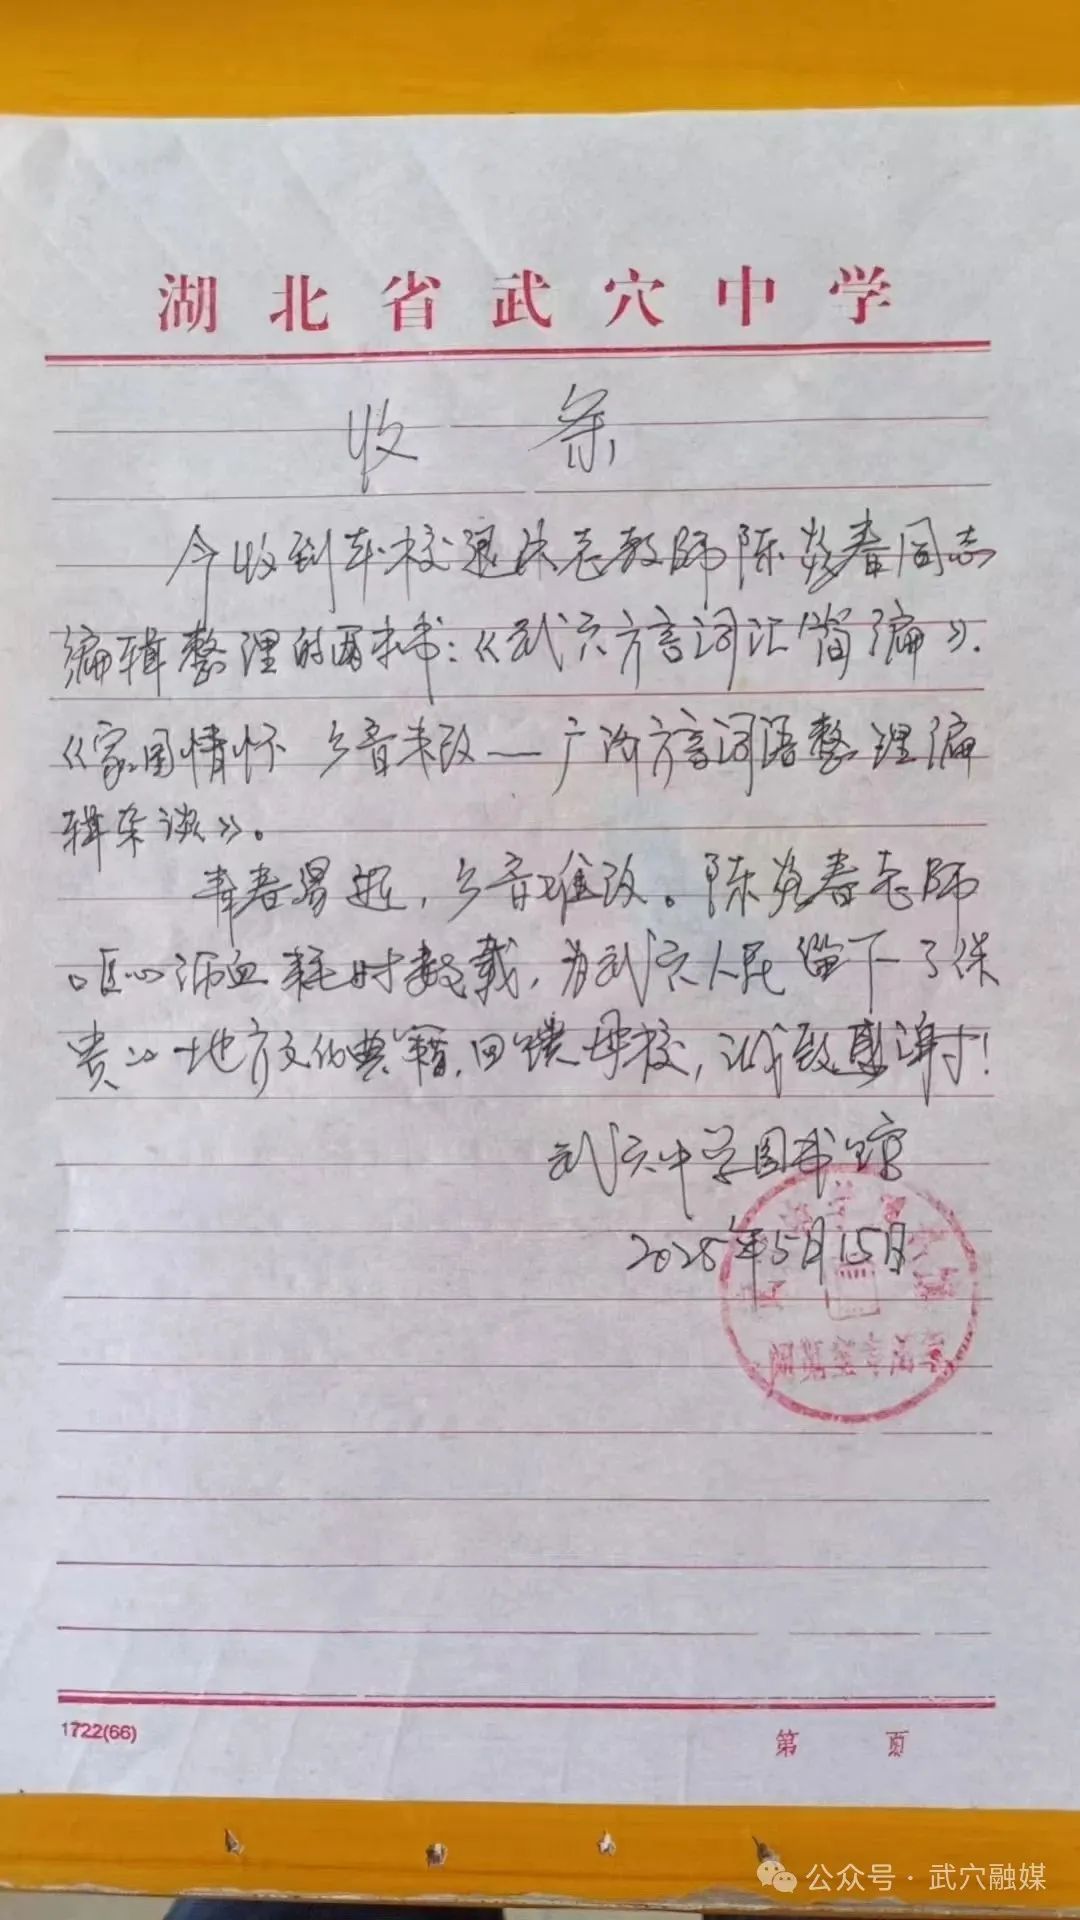 湖北省武穴中学
收条
今收到本校退休老教师陈炎春同志
编辑整理的两本书:《武穴方言词汇简编》.
《家国情怀 乡音未改——广济方言词语整理编
辑杂谈》。
青春易逝,乡音难改。陈炎春老师
呕心沥血耗时数载,为武穴人民留下了保
贵的地方文化典籍,回馈母校,诚致感谢!
武穴中学图书馆
2025年5月15日
1722(66)
第 页
公众号·武穴融媒